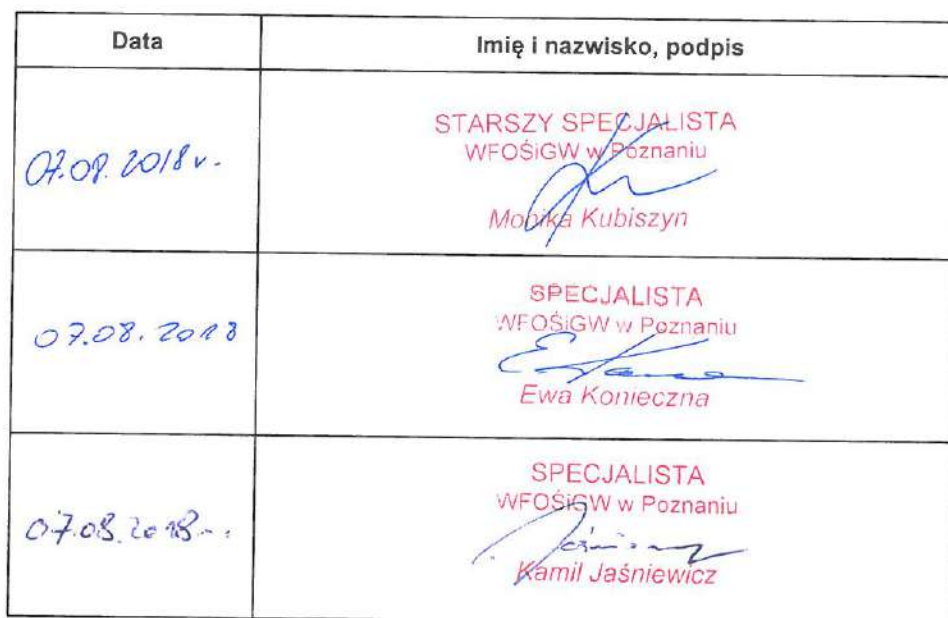 Data
Imię i nazwisko, podpis
07.08.2018 r.
STARSZY SPECJALISTA
WFOŚiGW w Poznaniu
Monika Kubiszyn
07.08.2018
SPECJALISTA
WFOŚiGW w Poznaniu
Ewa Konieczna
07.08.2018 r.
SPECJALISTA
WFOŚiGW w Poznaniu
Kamil Jaśniewicz